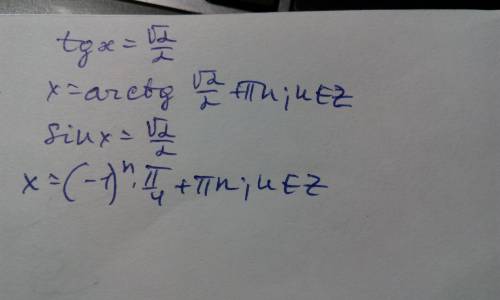 tgx = √2/2
x = arctg √2/2 + πn; n ∈ Z
sinx = √2/2
x = (-1)ⁿ · π/4 + πn; n ∈ Z